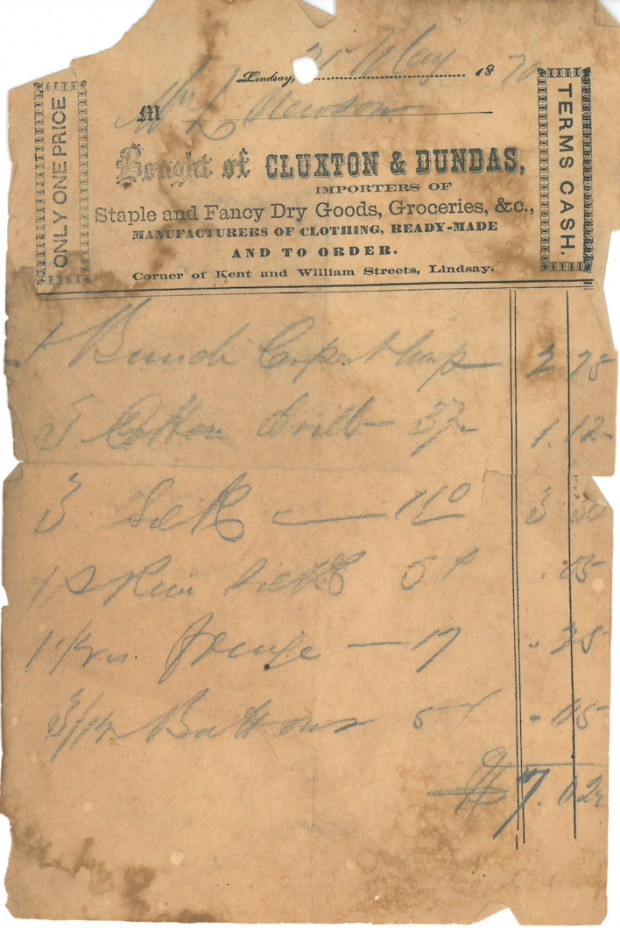 Lindsay, 21 May 1870
M
Bought of CLUXTON & DUNDAS,
IMPORTERS OF
Staple and Fancy Dry Goods, Groceries, &c.,
MANUFACTURERS OF CLOTHING, READY-MADE
AND TO ORDER.
Corner of Kent and William Streets, Lindsay.
ONLY ONE PRICE
TERMS CASH.
1 Bunch Carpet Warp 2 75
Cotton 1.12
3 Silk — 1 10 3 30
1 Skein Silk 5 .05
Fringe — 17 .25
Buttons 5 .05
$ 7.02